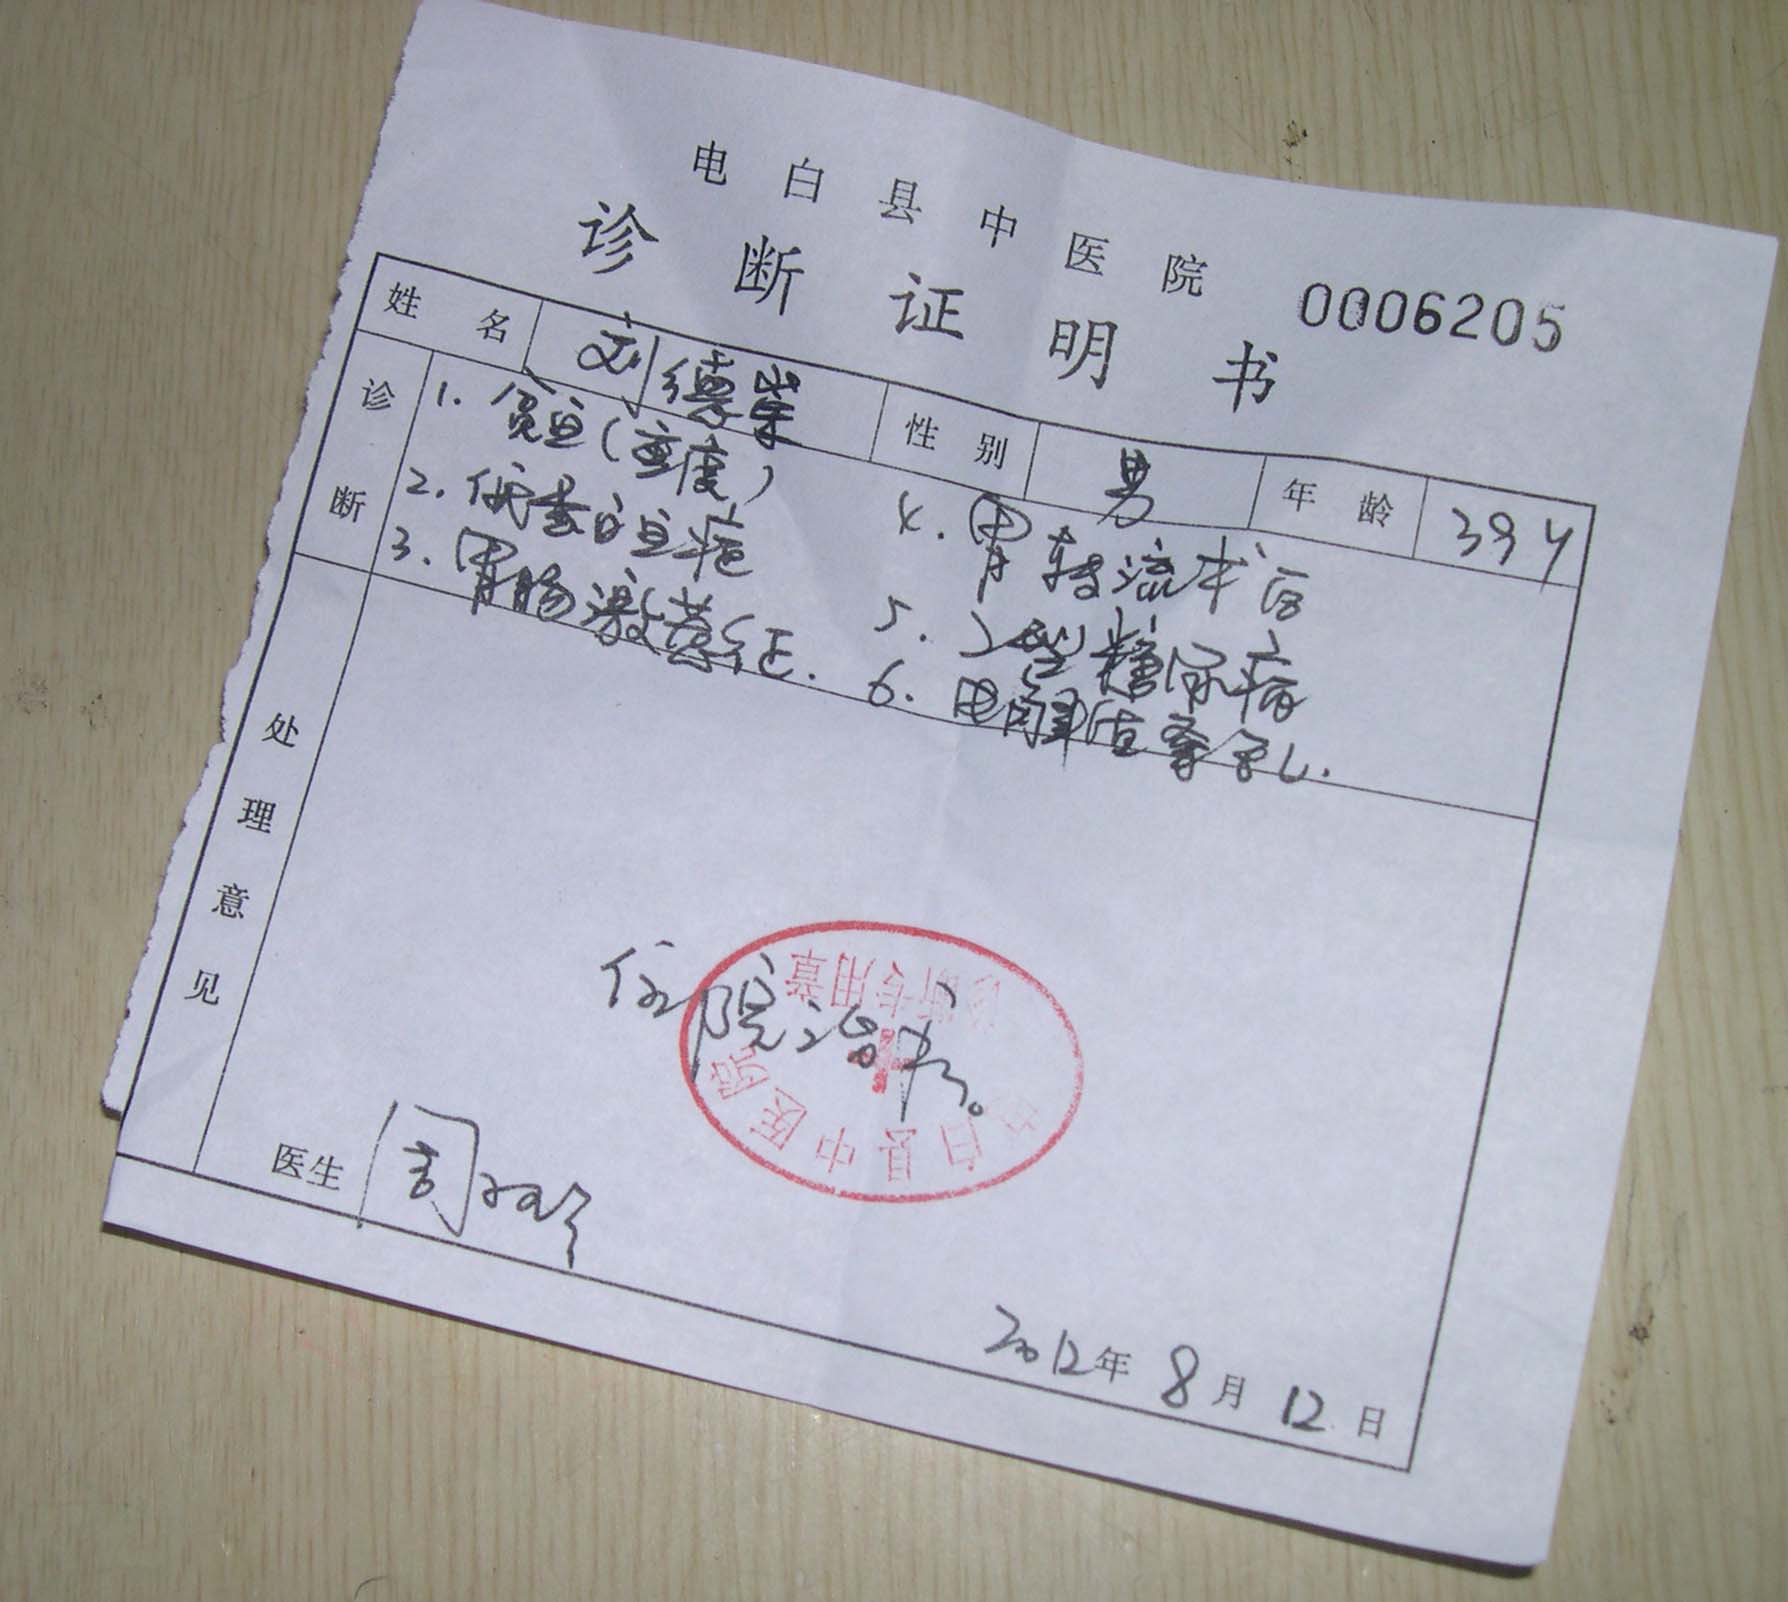 电白县中医院
诊断证明书 0006205
姓名 刘德崇 性别 男 年龄 39y
诊断
1. 贫血（重度）
2. 低蛋白血症
3. 胃肠激荡征.
4. 胃转流术后
5. 2型糖尿病
6. 电解质紊乱.
处理意见
住院治疗。
诊断专用章
电白县中医院
医生 周
2012年8月12日